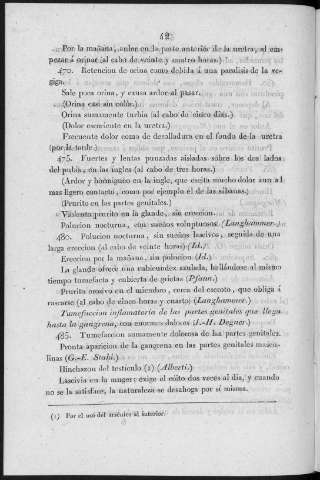 42
Por la mañana, ardor en la parte anterior de la uretra, al em-
pezar á orinar (al cabo de veinte y cuatro horas.)
470. Retencion de orina como debida á una paralisis de la ve-
giga.
Sale poca orina, y causa ardor al pasar.
(Orina casi sin color.)
Orina sumamente turbia (al cabo de cinco dias.)
(Dolor escociente en la uretra.)
Frecuente dolor como de desolladura en el fondo de la uretra
(por la tarde.)
475. Fuertes y lentas punzadas aisladas sobre los dos lados
del pubis, en las ingles (al cabo de tres horas.)
(Ardor y hormigueo en la ingle, que excita mucho dolor aun al
mas ligero contacto, como por ejemplo el de las sábanas.)
(Prurito en las partes genitales.)
Violento prurito en la glande, sin ereccion.
Polucion nocturna, con sueños voluptuosos. (Langhammer.)
480. Polucion nocturna, sin sueños lascivos, seguida de una
larga ereccion (al cabo de veinte horas) (Id.)
Ereccion por la mañana, sin polucion (Id.)
La glande ofrece una rubicundez azulada, hallándose al mismo
tiempo tumefacta y cubierta de grietas (Pfann.)
Prurito corrosivo en el miembro, cerca del escroto, que obliga á
rascarse (al cabo de cinco horas y cuarto) (Langhammer.)
Tumefaccion inflamatoria de las partes genitales que llega
hasta la gangrena, con enormes dolores (J.-H. Degner.)
485. Tumefaccion sumamente dolorosa de las partes genitales.
Pronta aparicion de la gangrena en las partes genitales mascu-
linas (G.-E. Stahl.)
Hinchazon del testículo (1) (Alberti.)
Lascivia en la muger; exige el cóito dos veces al dia, y cuando
no se la satisface, la naturaleza se desahoga por sí misma.
(1) Por el uso del arsénico al interior.